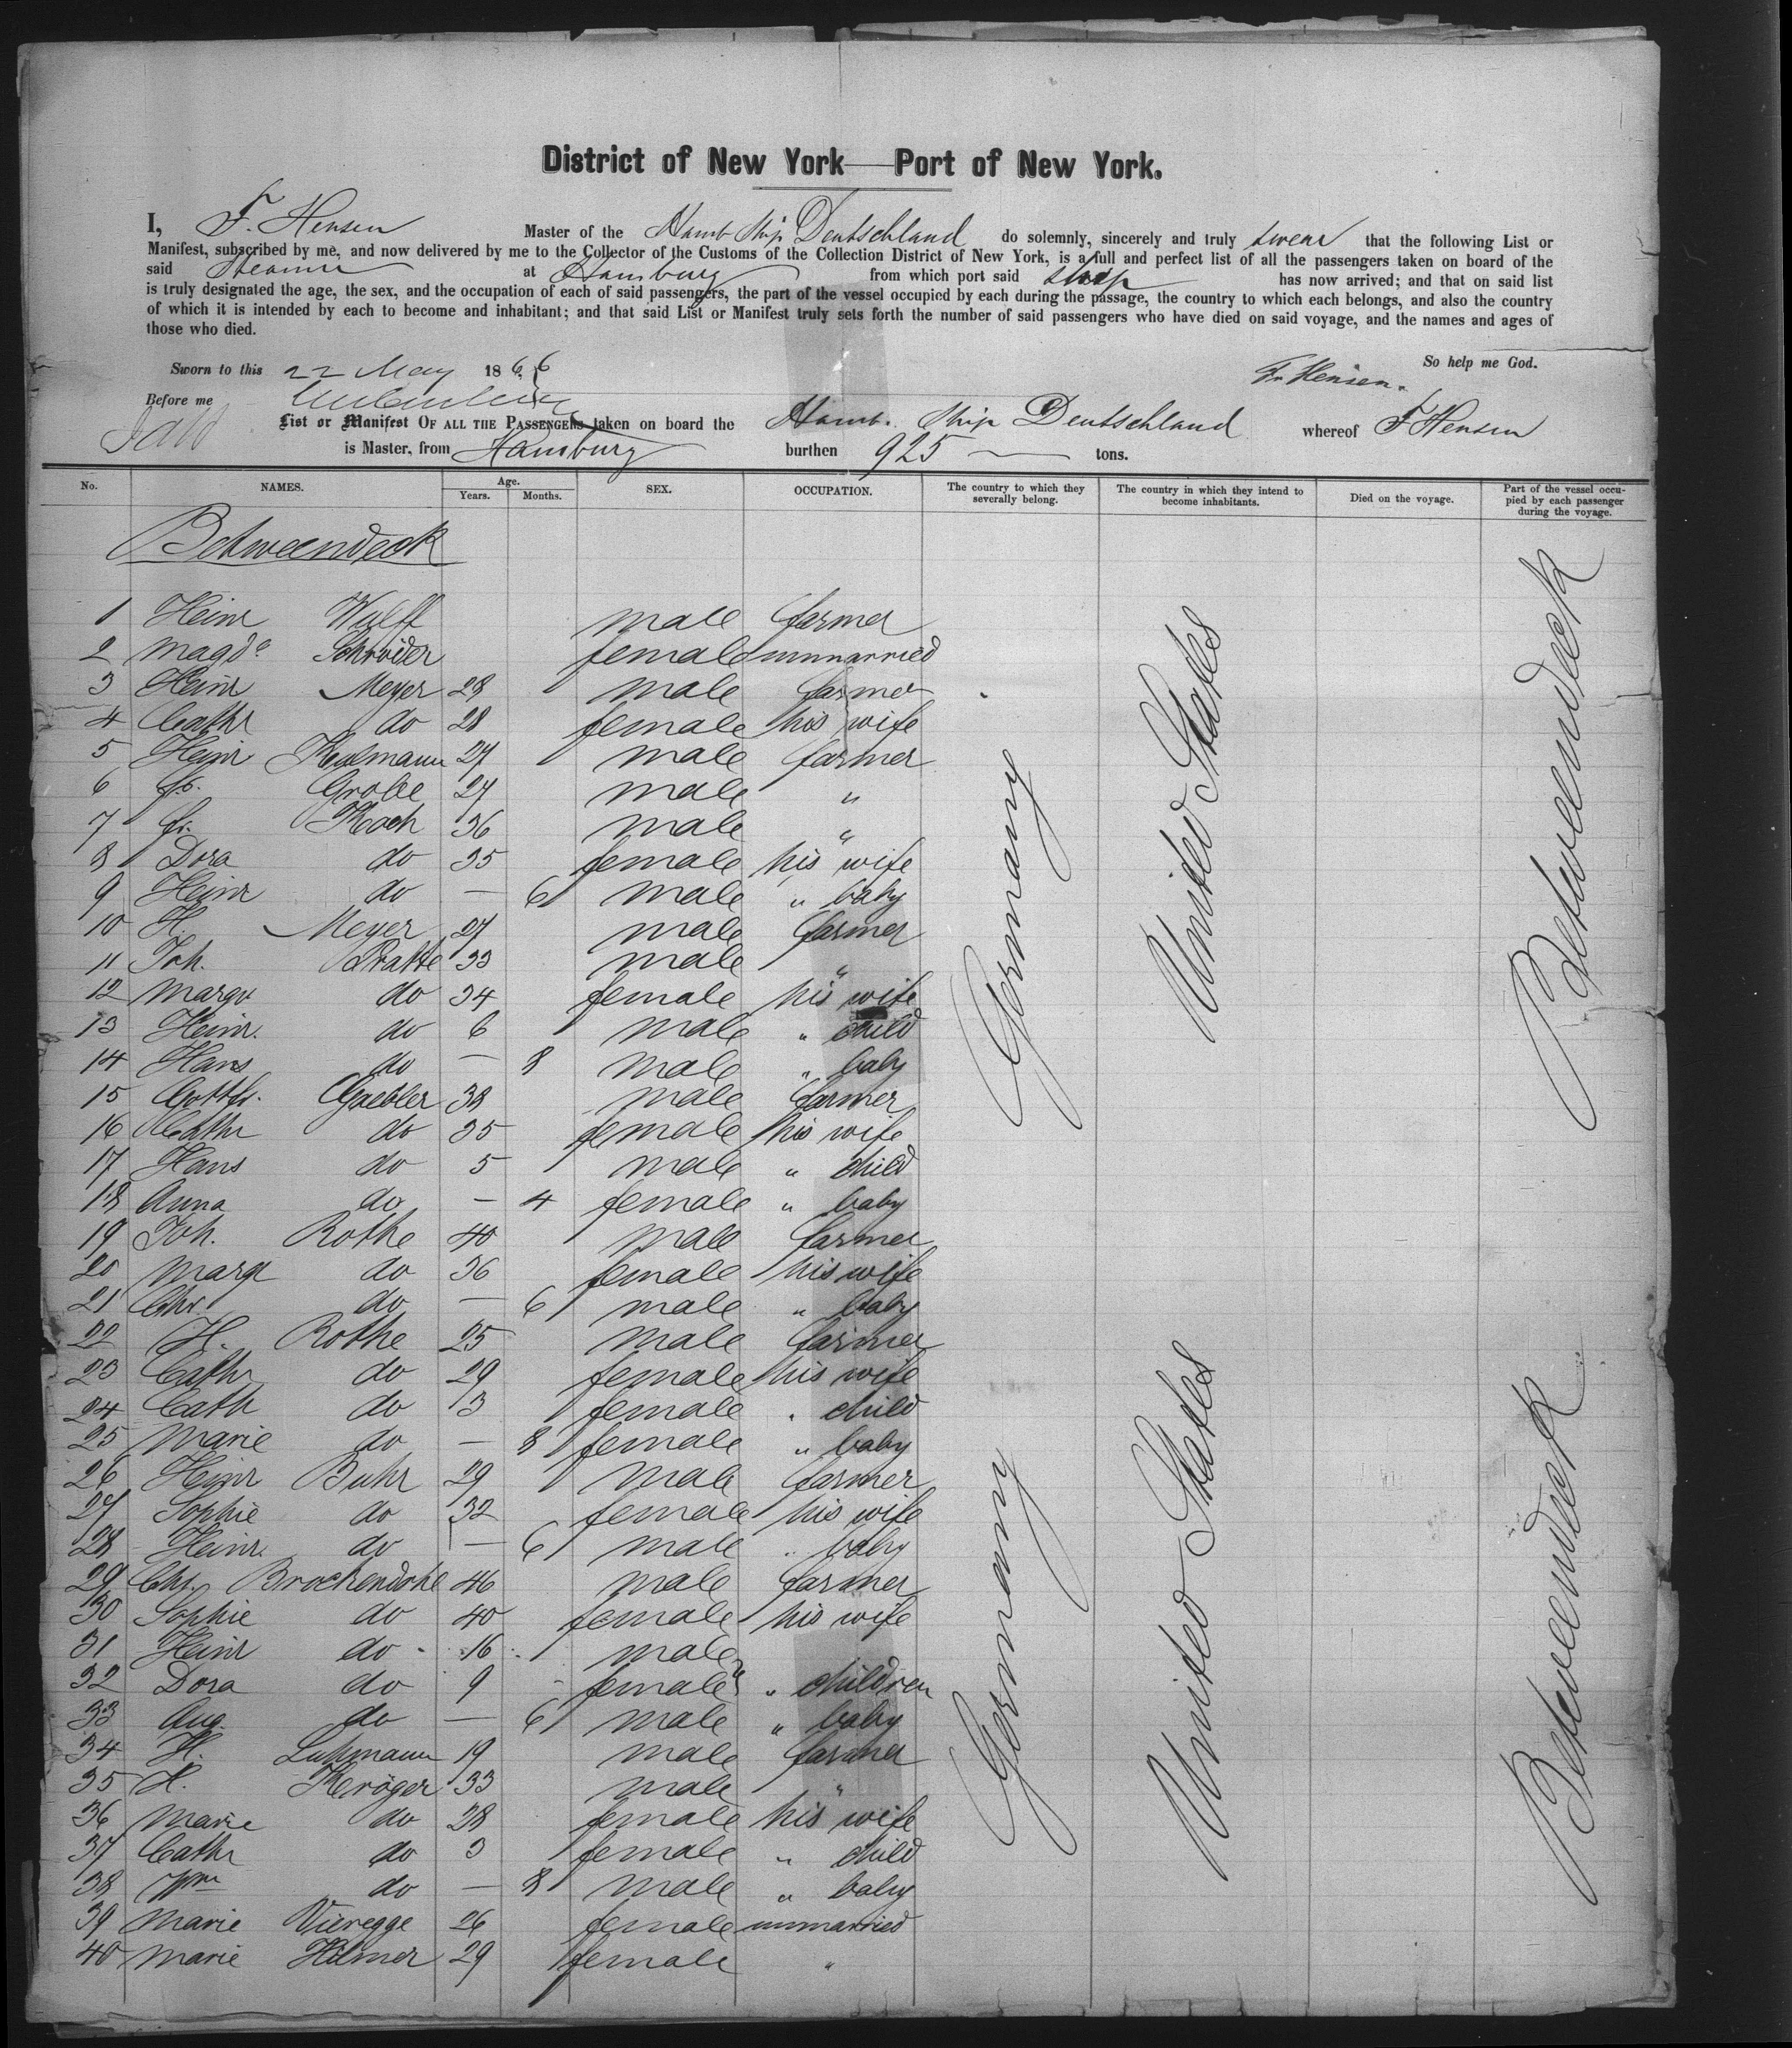 District of New York—Port of New York.
I, F. Hensen Master of the Hamb Ship Deutschland do solemnly, sincerely and truly swear that the following List or
Manifest, subscribed by me, and now delivered by me to the Collector of the Customs of the Collection District of New York, is a full and perfect list of all the passengers taken on board of the
said Steamer at Hamburg from which port said ship has now arrived; and that on said list
is truly designated the age, the sex, and the occupation of each of said passengers, the part of the vessel occupied by each during the passage, the country to which each belongs, and also the country
of which it is intended by each to become and inhabitant; and that said List or Manifest truly sets forth the number of said passengers who have died on said voyage, and the names and ages of
those who died.
So help me God.
Sworn to this 22 May 1866
F. Hensen.
Before me
List or Manifest OF ALL THE PASSENGERS taken on board the Hamb. Ship Deutschland whereof F Hensen
is Master, from Hamburg burthen 925 tons.
No. NAMES. Age. Years. Months. SEX. OCCUPATION. The country to which they severally belong. The country in which they intend to become inhabitants. Died on the voyage. Part of the vessel occupied by each passenger during the voyage.
Betweendeck
1 Heinr Wulff male farmer
2 Magda Schröder female unmarried
3 Heinr Meyer 28 male farmer
4 Cathr do 28 female his wife
5 Heinr 27 male farmer
6 Fr. Grobe 27 male "
7 Fr. Koch 36 male "
8 Dora do 35 female his wife
9 Heinr do — 6 male " baby
10 H. Meyer 27 male farmer
11 Joh. 33 male "
12 Margr do 34 female his wife
13 Heinr. do 6 male " child
14 Hans do — 8 male " baby
15 Gottfr. Gaebler 38 male farmer
16 Cathr do 35 female his wife
17 Hans do 5 male " child
18 Anna do — 4 female " baby
19 Joh. Rothe 40 male farmer
20 Margr do 36 female his wife
21 Chr. do — 6 male " baby
22 H. Rothe 25 male farmer
23 Cathr do 29 female his wife
24 Cath do 3 female " child
25 Marie do — 8 female " baby
26 Heinr Buhr 29 male farmer
27 Sophie do 32 female his wife
28 Heinr. do — 6 male " baby
29 Chr. 46 male farmer
30 Sophie do 40 female his wife
31 Heinr do 16 male
32 Dora do 9 female } " children
33 Aug. do — 6 male " baby
34 H. Luhmann 19 male farmer
35 H. Kröger 33 male "
36 Marie do 28 female his wife
37 Cathr do 3 female " child
38 Wm do — 8 male " baby
39 Marie Vieregge 26 female unmarried
40 Marie Hilmer 29 female "
Germany
United States
Betweendeck
Germany
United States
Betweendeck